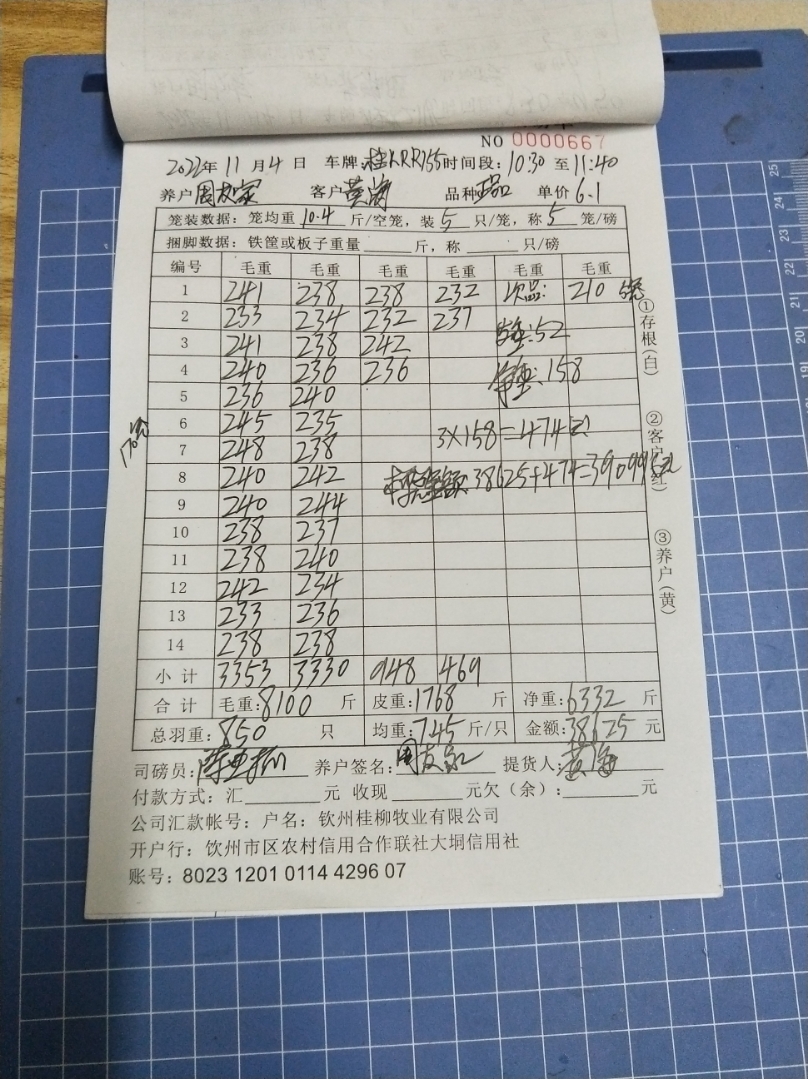 NO 0000667
2022年 11 月 4 日 车牌: 桂KRR755 时间段: 10:30 至 11:40
养户 周友家 客户 黄海 品种 正品 单价 6.1
笼装数据: 笼均重 10.4 斤/空笼, 装 5 只/笼, 称 5 笼/磅
捆脚数据: 铁筐或板子重量 斤, 称 只/磅
编号 毛重 毛重 毛重 毛重 毛重 毛重
1 241 238 238 232 次品: 210
2 233 234 232 237
3 241 238 242 皮重:52
4 240 236 236 净重:158
5 236 240
6 245 235
7 248 238 3×158=474元
8 240 242 38625+474=39099元
9 240 244
10 238 237
11 238 240
12 242 234
13 233 236
14 238 238
小计 3353 3330 948 469
合计 毛重:8100 斤 皮重:1768 斤 净重:6332 斤
总羽重: 850 只 均重: 7.45 斤/只 金额: 38625 元
司磅员: 养户签名: 周友家 提货人: 黄海
付款方式: 汇 元 收现 元欠(余): 元
公司汇款帐号: 户名: 钦州桂柳牧业有限公司
开户行: 钦州市区农村信用合作联社大垌信用社
账号: 8023 1201 0114 4296 07
①存根(白)
②客户(红)
③养户(黄)
170笼